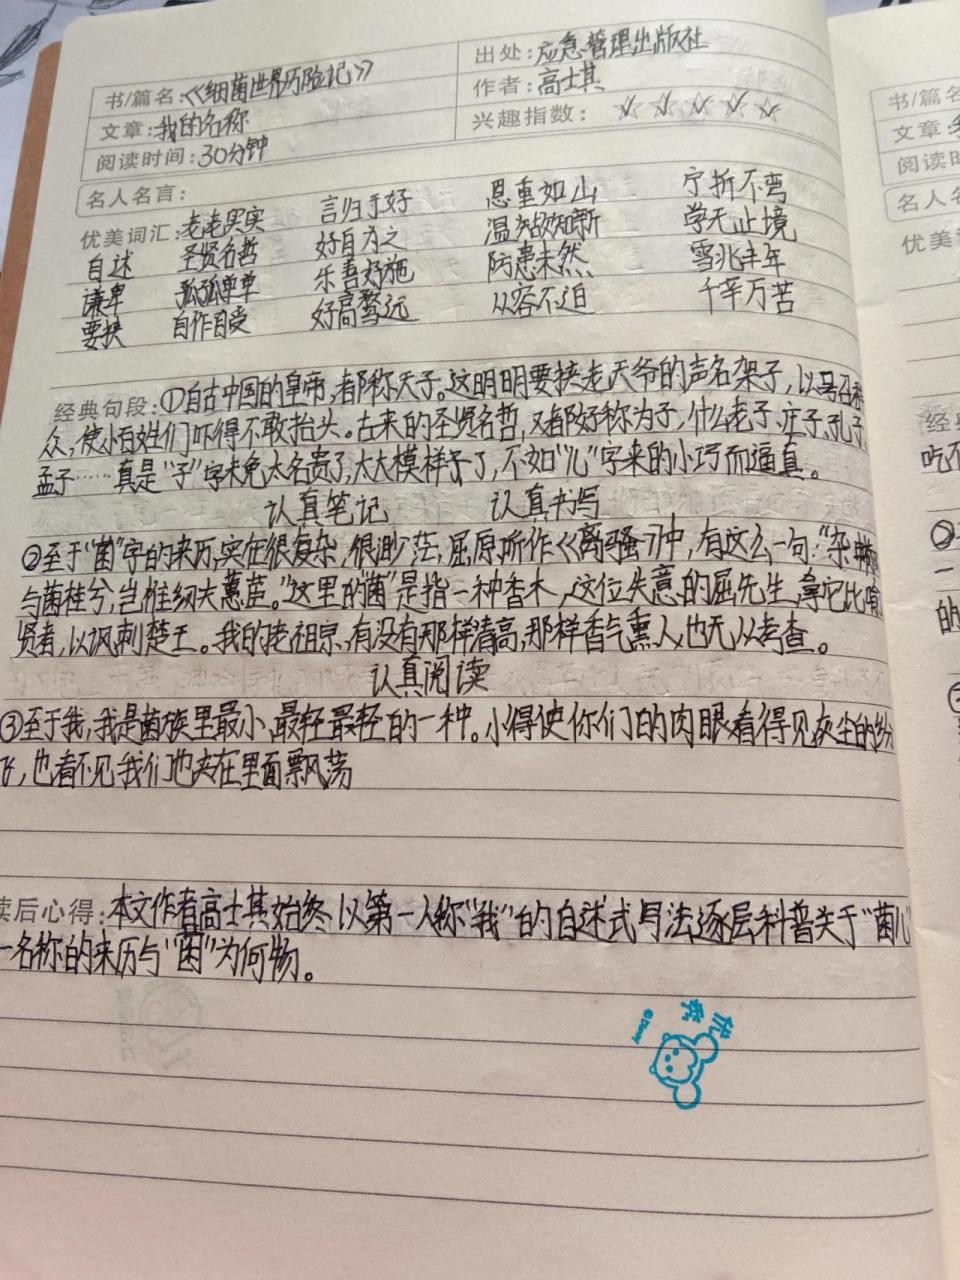 书/篇名:《细菌世界历险记》 出处:应急管理出版社
作者:高士其
文章:我的名称 兴趣指数:☆☆☆☆☆
阅读时间:30分钟
名人名言:
优美词汇:老老实实 言归于好 恩重如山 宁折不弯
自述 圣贤名哲 好自为之 温故知新 学无止境
谦卑 孤孤单单 乐善好施 防患未然 瑞兆丰年
要挟 自作自受 好高骛远 从容不迫 千辛万苦
经典句段:①自古中国的皇帝,都称天子。这明明要挟老天爷的声名架子,以号召
众,使小百姓们吓得不敢抬头。古来的圣贤名哲,又都好称为子,什么老子、庄子、孔子、
孟子……真是“子”字未免太名贵了,太大模样了,不如“儿”字来的小巧而逼真。
认真笔记 认真书写
②至于“菌”字的来历,实在很复杂,很渺茫,屈原所作《离骚》中,有这么一句:“杂
与菌桂兮,岂惟纫夫蕙茝。”这里的“菌”是指一种香木,这位失意的屈先生,拿它比喻
贤者,以讽刺楚王。我的老祖宗,有没有那样清高,那样香气熏人,也无从考查。
认真阅读
③至于我,我是菌族里最小、最轻最轻的一种。小得使你们的肉眼看得见灰尘的纷
飞,也看不见我们也夹在里面飘荡
读后心得:本文作者高士其始终以第一人称“我”的自述式写法逐层科普关于“菌儿”
一名称的来历与“菌”为何物。
书/篇名
文章:
阅读时间
名人名
优美
经典
吃不
②
一
的